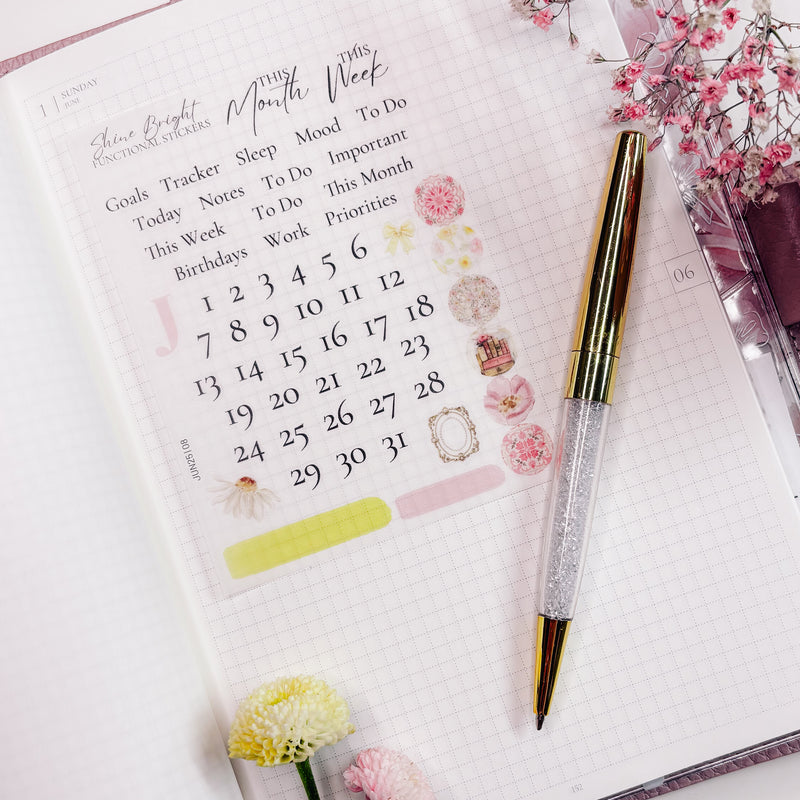 1 | SUNDAY
JUNE
Shine Bright
FUNCTIONAL STICKERS
THIS
Month
THIS
Week
Goals Tracker Sleep Mood To Do
Today Notes To Do Important
This Week To Do This Month
Birthdays Work Priorities
J
1 2 3 4 5 6
7 8 9 10 11 12
13 14 15 16 17 18
19 20 21 22 23
24 25 26 27 28
29 30 31
JUN25|08
06
152